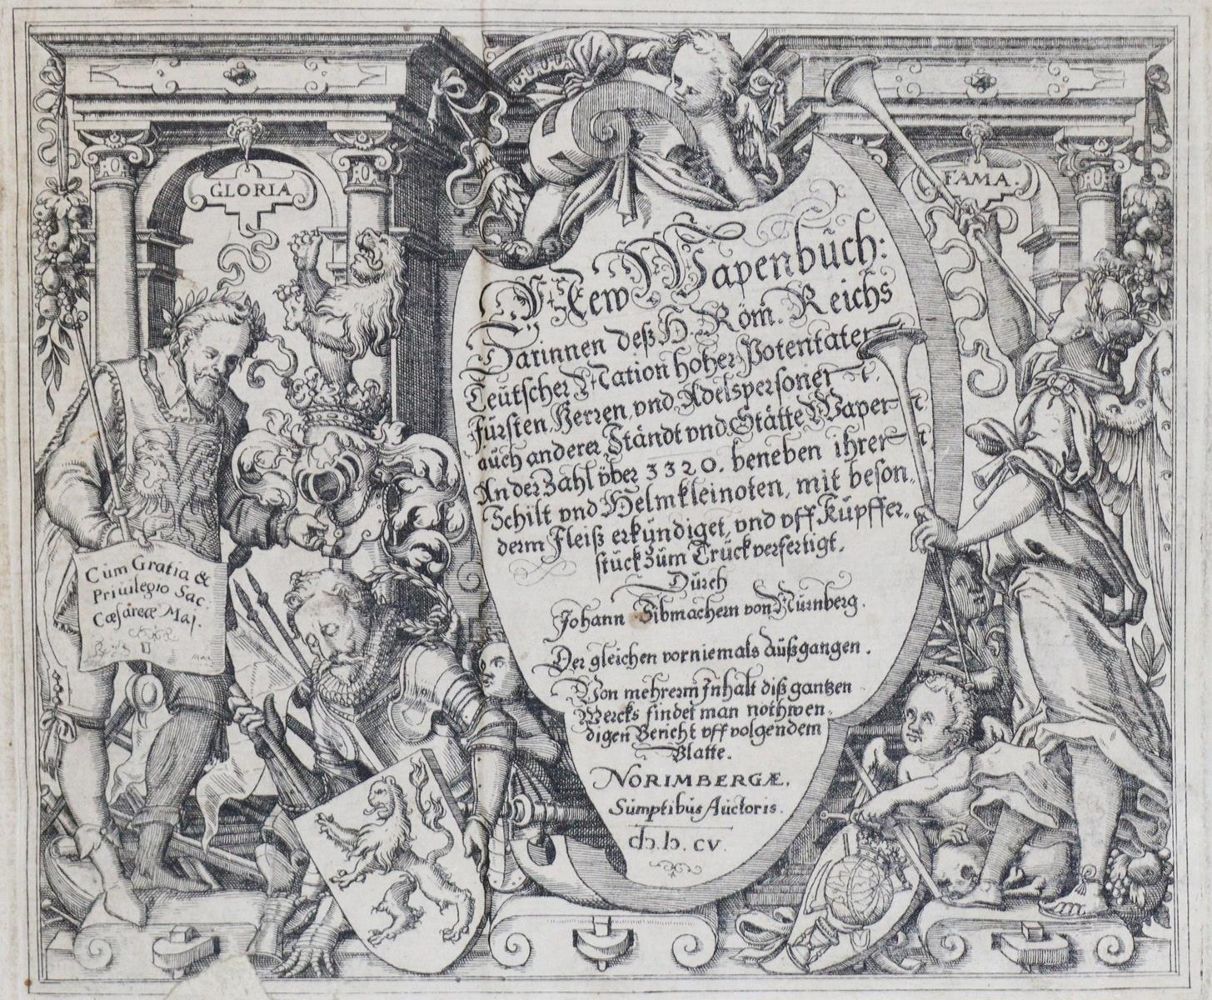 GLORIA
FAMA.
New Wapenbůch:
Darinnen deß H. Röm. Reichs
Teutscher Nation hoher Potentaten
fürsten, Herren, vnd Adelspersonen
aůch anderer Ständt vnd Stätte Wapen
An der Zahl vber 3320. beneben ihren
Schilt vnd Helmkleinoten, mit beson,
derm Fleiß erkůndiget, vnd vff Kůpffer,
stůck zům Trůck verfertigt.
Dürch
Johann Sibmachern von Nůrnberg.
Der gleichen vorniemals aůßgangen.
Von mehrerm Inhalt diß gantzen
Wercks findet man nothwen,
digen Bericht vff volgendem
Blatte.
NORIMBERGÆ,
Sůmptibůs Aůctoris.
cIↄ. Iↄ. CV.
Cům Gratia &
Priůilegio Sac.
Cæsareæ Maj.